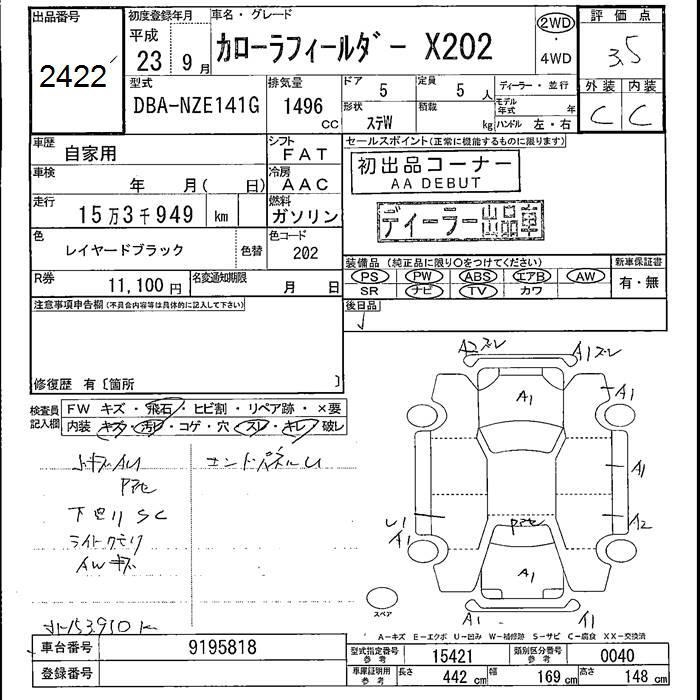 出品番号
2422
初度登録年月
平成
23年 9月
車名・グレード
カローラフィールダー X202
2WD
・
4WD
評価点
3.5
外装 内装
C C
型式
DBA-NZE141G
排気量
1496
CC
ドア 5
定員 5 人
形状 ステW
積載 kg
ディーラー・並行
モデル年式 年
ハンドル 左・右
車歴 自家用
シフト FAT
車検 年 月( 日)
冷房 AAC
走行 15万3千949 km
燃料 ガソリン
色 レイヤードブラック 色替
色コード 202
R券 11,100円
名変通知期限 月 日
セールスポイント(正常に機能するものに限ります)
初出品コーナー
AA DEBUT
ディーラー出品車
装備品(純正品に限り○をつけてください)
新車保証書
PS PW ABS エアB AW
SR ナビ TV カワ
有・無
後日品
注意事項申告欄(不具合内容等は具体的に記入して下さい)
修復歴 有〔箇所 〕
検査員記入欄
FW キズ・飛石・ヒビ割・リペア跡・×要
内装 キズ・汚れ・コゲ・穴・スレ・キレ・破レ
エンドパネルU
下回りSC
ライトクモリ
AWキズ
A2ズレ A1ズレ
A1
A1
A1
U1
A1
A2
A1
A1
スペア
A-キズ E-エクボ U-凹み W-補修跡 S-サビ C-腐食 XX-交換済
車台番号 9195818
登録番号
型式指定番号 参考 15421
類別区分番号 参考 0040
車庫証明用 参考 長さ 442 cm 幅 169 cm 高さ 148 cm